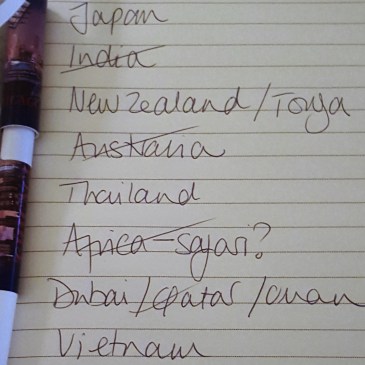 Japan
India
New Zealand/Tonga
Australia
Thailand
Africa-Safari?
Dubai/Qatar/Oman
Vietnam